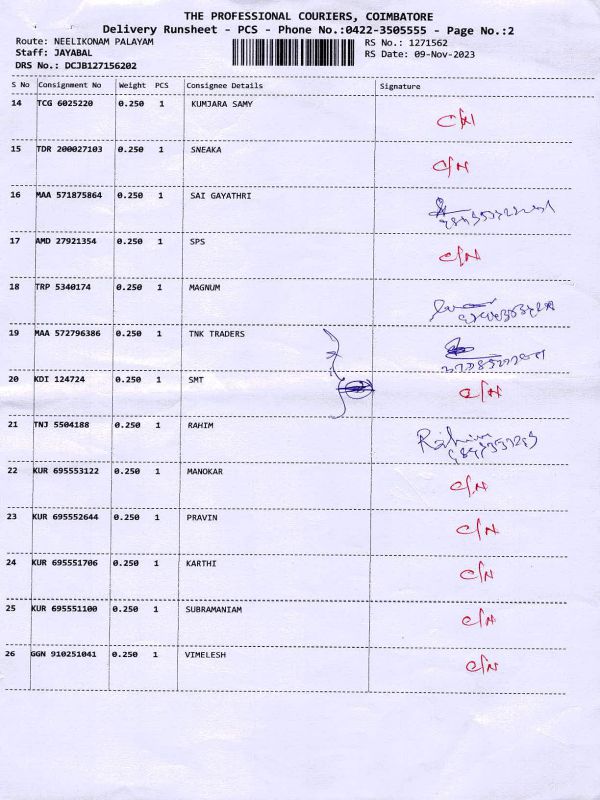 THE PROFESSIONAL COURIERS, COIMBATORE
Delivery Runsheet - PCS - Phone No.:0422-3505555 - Page No.:2
Route: NEELIKONAM PALAYAM RS No.: 1271562
Staff: JAYABAL RS Date: 09-Nov-2023
DRS No.: DCJB127156202
S No Consignment No Weight PCS Consignee Details Signature
14 TCG 6025220 0.250 1 KUMJARA SAMY C/N
15 TDR 200027103 0.250 1 SNEAKA C/N
16 MAA 571875864 0.250 1 SAI GAYATHRI
17 AMD 27921354 0.250 1 SPS C/N
18 TRP 5340174 0.250 1 MAGNUM
19 MAA 572796386 0.250 1 TNK TRADERS
20 KDI 124724 0.250 1 SMT C/N
21 TNJ 5504188 0.250 1 RAHIM Rahim
22 KUR 695553122 0.250 1 MANOKAR C/N
23 KUR 695552644 0.250 1 PRAVIN C/N
24 KUR 695551706 0.250 1 KARTHI C/N
25 KUR 695551100 0.250 1 SUBRAMANIAM C/N
26 GGN 910251041 0.250 1 VIMELESH C/N